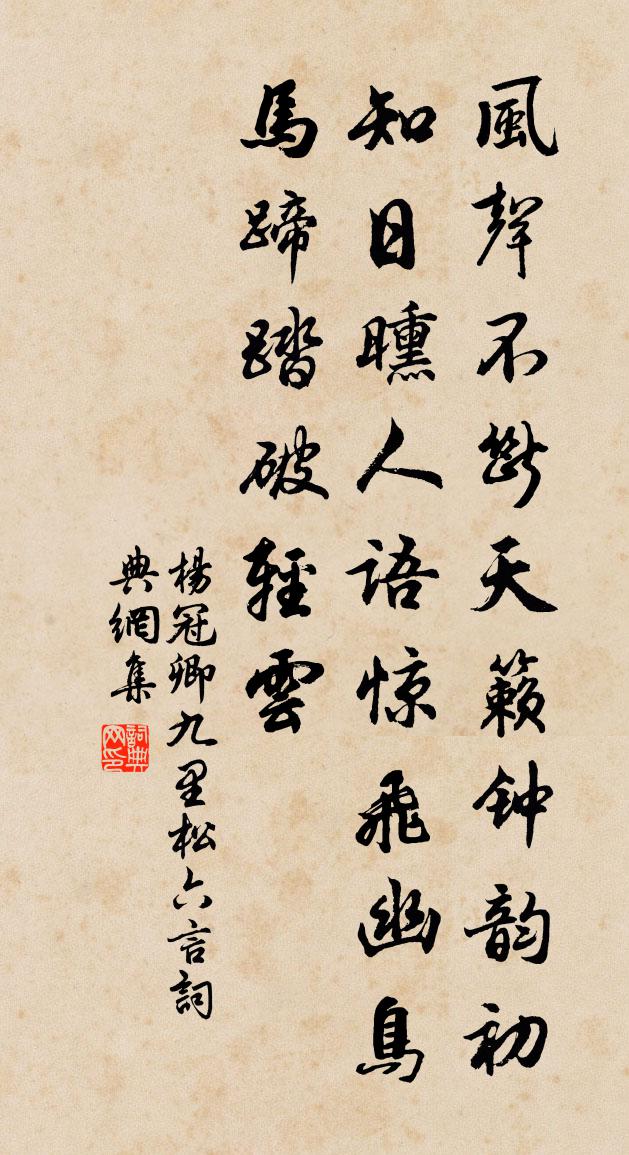 風聲不斷天籟钟韵初
知日曛人語惊飛幽鳥
馬蹄踏破輕雲
楊冠卿九里松六言詞
典網集
詞典
网印